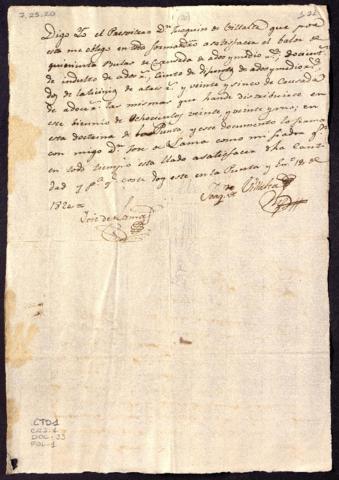 7.25.20
Digo Yo el Presvitero Dn. Joaquin de Villalta que por
esta me obligo en toda forma satisfacer el balor de
quinientas Bulas de Cruzada de a dos y medio
de indulto de a dos ciento de Difuntos de a dos y medio
dos de laticinio de a tres y veinte y sinco de Cruzada
de a doce las mismas que hande distribuirse en
este biennio de Ochocientos veinte, y veinte y uno, en
esta Doctrina de la Punta, y este documento lo firma
con migo Dn. Jose de Lama como mi fiador
en todo tiempo esta llado a satisfacer dha Canti
dad y pa. q. conste doy este en la Punta y En.o 18 de
1820
Joaqn. Villalta
Jose de Lama
CTD1
CAJ-1
DOC-33
FOL-1